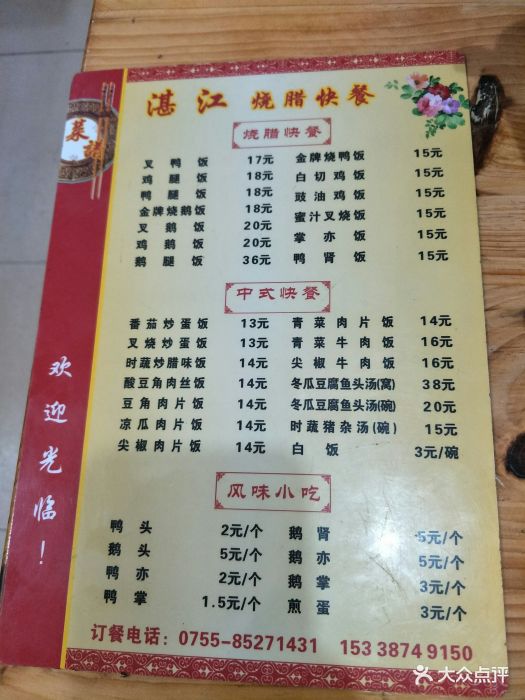 湛江 烧腊快餐
菜谱
欢迎光临!
烧腊快餐
叉鸭饭 17元
鸡腿饭 18元
鸭腿饭 18元
金牌烧鹅饭 18元
叉鹅饭 20元
鸡鹅饭 20元
鹅腿饭 36元
金牌烧鸭饭 15元
白切鸡饭 15元
豉油鸡饭 15元
蜜汁叉烧饭 15元
掌亦饭 15元
鸭肾饭 15元
中式快餐
番茄炒蛋饭 13元
叉烧炒蛋饭 13元
时蔬炒腊味饭 14元
酸豆角肉丝饭 14元
豆角肉片饭 14元
凉瓜肉片饭 14元
尖椒肉片饭 14元
青菜肉片饭 14元
青菜牛肉饭 16元
尖椒牛肉饭 16元
冬瓜豆腐鱼头汤(窝) 38元
冬瓜豆腐鱼头汤(碗) 20元
时蔬猪杂汤(碗) 15元
白饭 3元/碗
风味小吃
鸭头 2元/个
鹅头 5元/个
鸭亦 2元/个
鸭掌 1.5元/个
鹅肾 5元/个
鹅亦 5元/个
鹅掌 3元/个
煎蛋 3元/个
订餐电话: 0755-85271431 153 3874 9150
大众点评